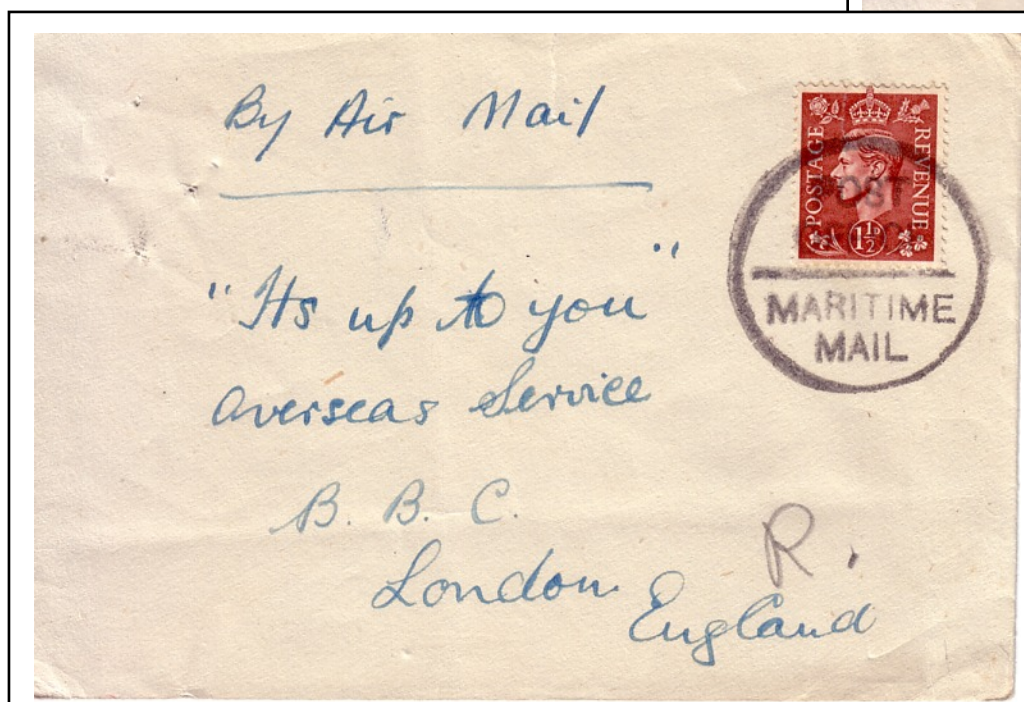 By Air Mail
"Its up to you"
Overseas Service
B. B. C.
London
England
R.
POSTAGE
REVENUE
1½D
MARITIME
MAIL